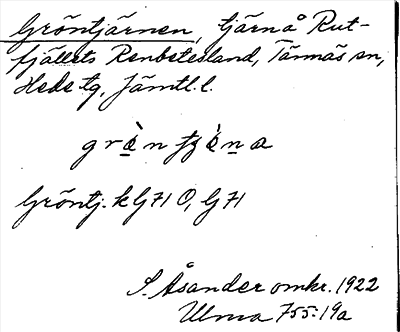 Gröntjärnen, tjärn å Rut-
fjällets Renbetesland, Tännäs sn,
Hede tg, Jämtl. l.
Gröntj. k G71 O, G71
S. Åsander omkr. 1922
Ulma 755:19a